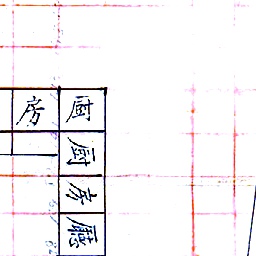 房
厨
厨
房
廳